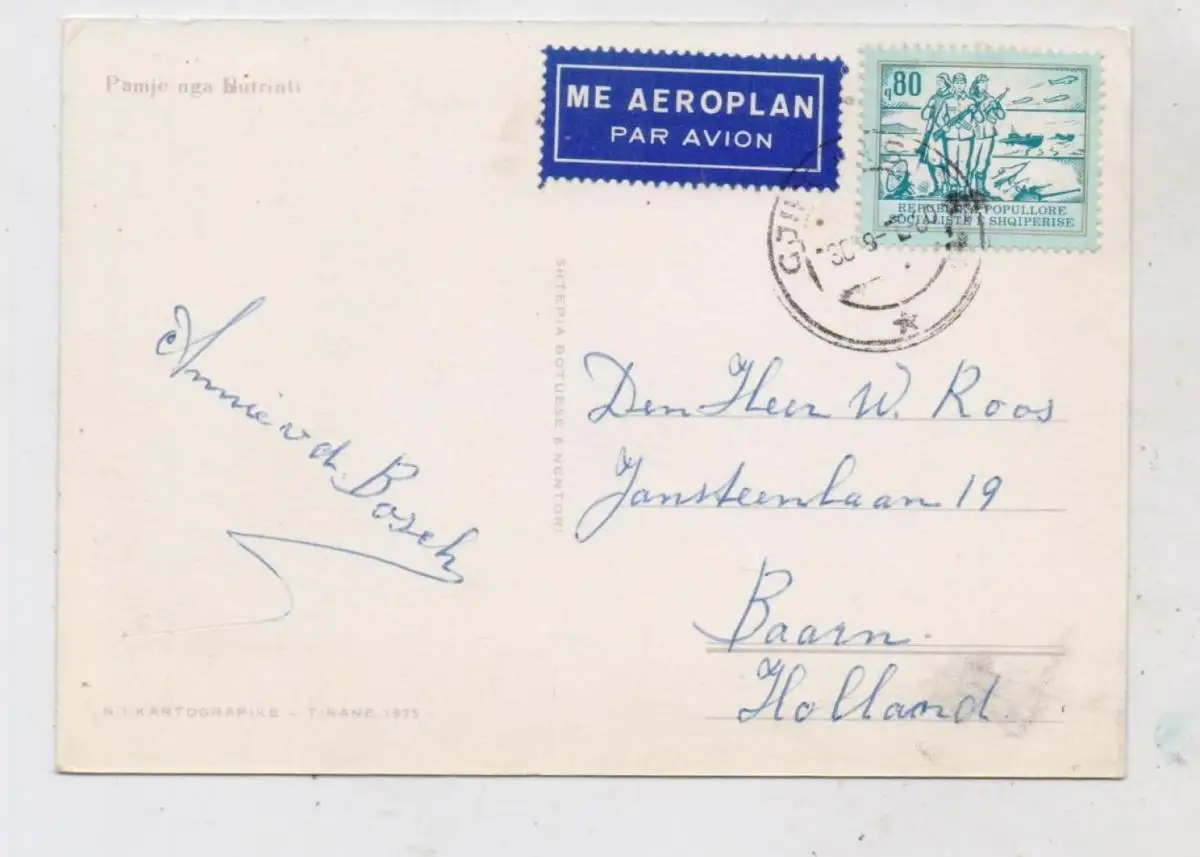 Pamje nga Butrinti
ME AEROPLAN
PAR AVION
q80
REPUBLIKA POPULLORE
SOCIALISTE E SHQIPERISE
SHTEPIA BOTUESE 8 NENTORI
Annie v d. Bosch
Den Heer W. Roos
Jansteenlaan 19
Baarn
Holland
N.I. KARTOGRAFIKE – TIRANE 1975